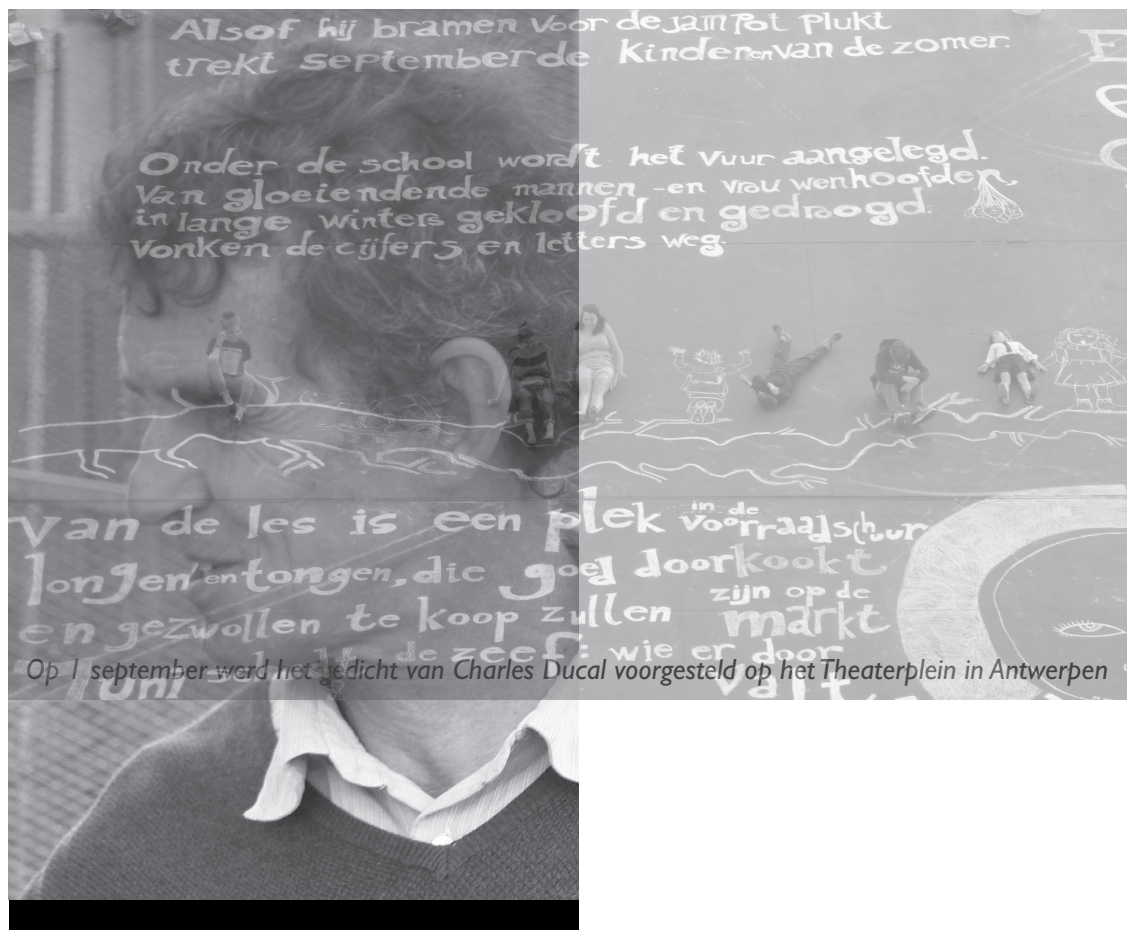 Alsof hij bramen voor de jampot plukt
trekt september de Kinderen van de zomer.
Onder de school wordt het vuur aangelegd.
Van gloeiendende mannen -en vrouwenhoofden,
in lange winters gekloofd en gedroogd.
vonken de cijfers en letters weg.
van de les is een plek in de voorraadschuur
longen en tongen, die goed doorkookt
en gezwollen te koop zullen zijn op de markt
de zeef: wie er door
valt
Op 1 september werd het gedicht van Charles Ducal voorgesteld op het Theaterplein in Antwerpen